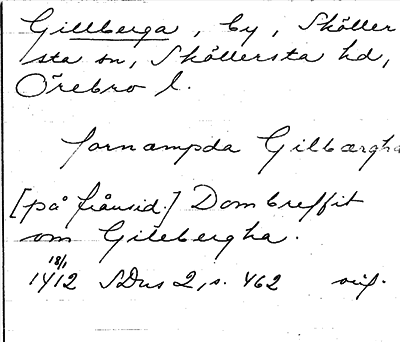 Gillberga, by, Sköller
sta sn, Sköllersta hd,
Örebro l.
fornæmpda Gilbærgha
[på frånsid.] Dombreffit
om Gilebergha.
18/1
1412 SDns 2, s. 462 avs.